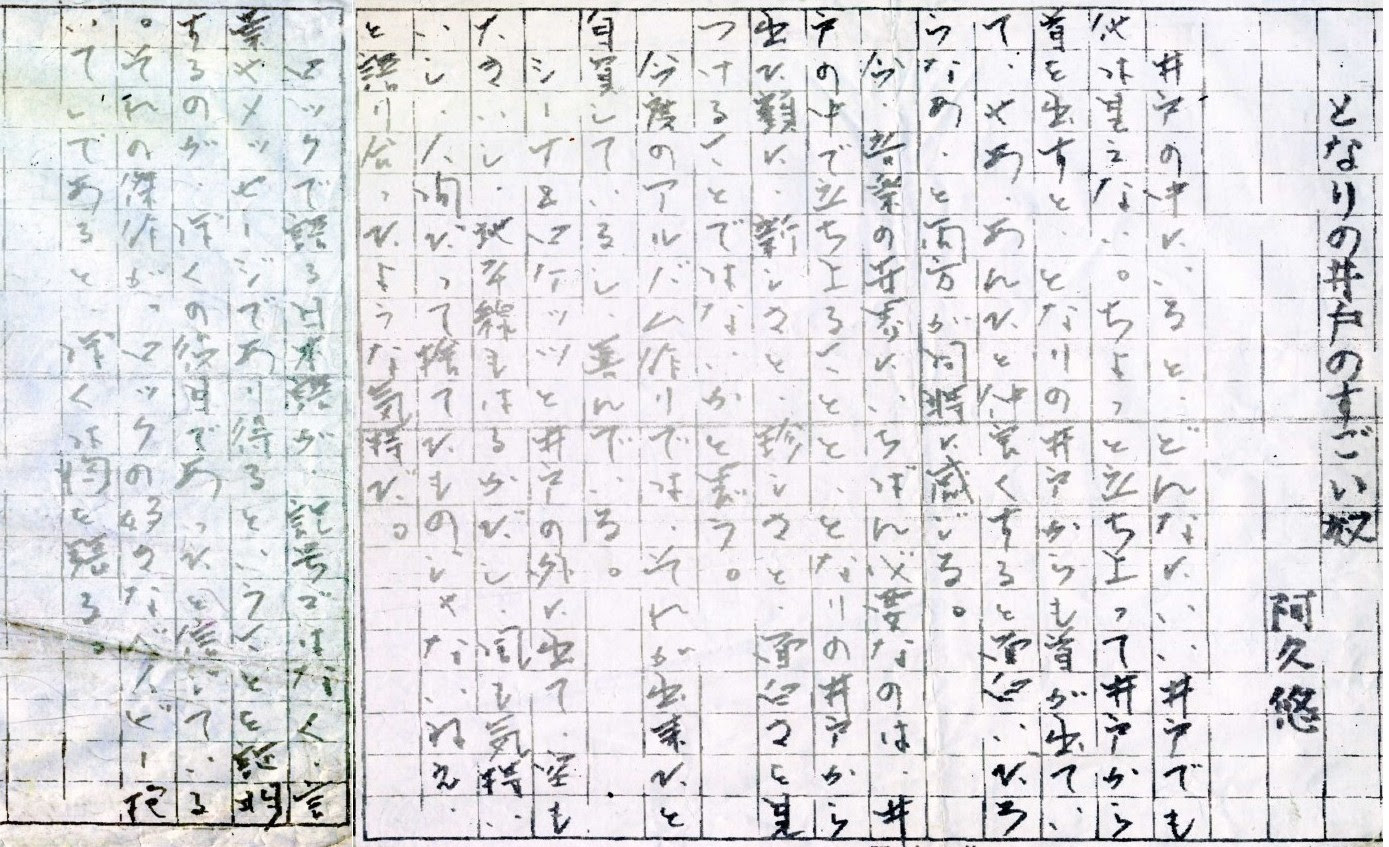 となりの井戸のすごい奴
阿久悠
井戸の中にいると、どんなにいい井戸でも
他は見えない。ちょっと立ち上って井戸から
首を出すと、となりの井戸からも首が出てい
て、やあ、あんたと仲良くすると面白いだろ
うなあ、と両方が同時に感じる。
今、音楽の世界にいちばん必要なのは、井
戸の中で立ち上ることと、となりの井戸から
出た顔に、新しさと、珍しさと、面白さを見
つけることではないかと思う。
今度のアルバム作りでは、それが出来たと
自負しているし、喜んでいる。
シーナ&ロケッツと井戸の外に出て、空も
たかいし、地平線もはるかだし、風も気持い
いし、人間だって捨てたものじゃないねえ、
と語り合ったような気持だ。
ロックで語る日本語が、記号ではなく、言
葉やメッセージであり得るということを証明
するのが、ぼくの役目であったと信じている
。それの傑作が、ロックの好きなベイビー抱
いて、であると、ぼくは胸を張る。